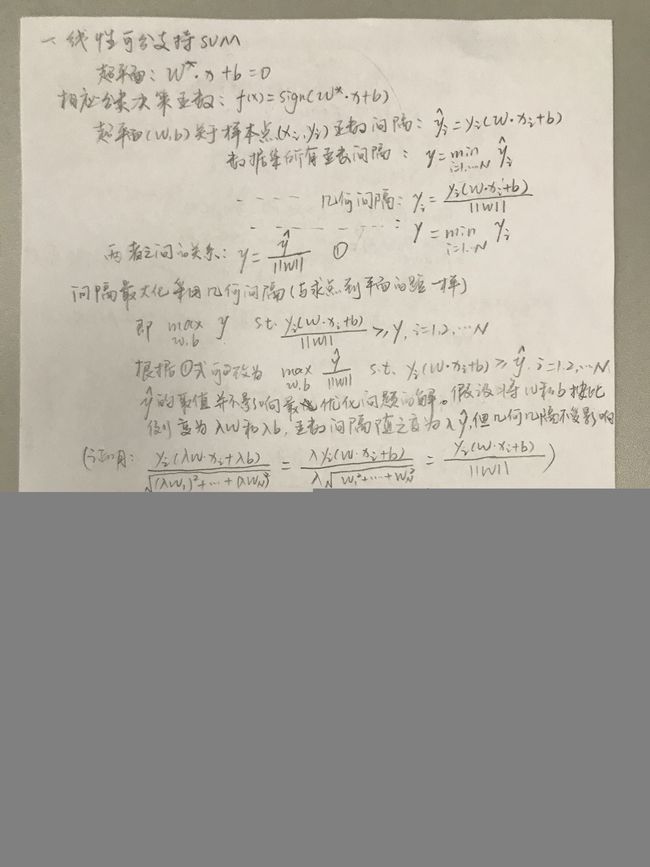 一线性可分支持SVM
超平面: W*·x+b=0
相应分类决策函数: f(x)=sign(W*·x+b)
超平面(W,b)关于样本点(xi,yi)函数间隔: ŷi=yi(W·xi+b)
数据集所有函数间隔: y=min ŷi
i=1,...N
---- 几何间隔: yi=yi(W·xi+b)/||W||
------: y=min yi
i=1...N
两者之间的关系: y=ŷ/||W|| ①
间隔最大化等因几何间隔(与求点到平面的距一样)
即 max y s.t. yi(W·xi+b)/||W||≥y, i=1,2,...N
w,b
根据①式可改为 max ŷ/||W|| s.t. yi(W·xi+b)≥ŷ, i=1,2,...N
w,b
ŷ的取值并不影响最优化问题的解。假设将W和b按比
例变为λW和λb, 函数间隔随之变为λŷ,但几何间隔不受影响
(证明: yi(λW·xi+λb)/√((λW1)²+...+(λWN)²) = λyi(W·xi+b)/λ√(W1²+...+WN²) = yi(W·xi+b)/||W||)